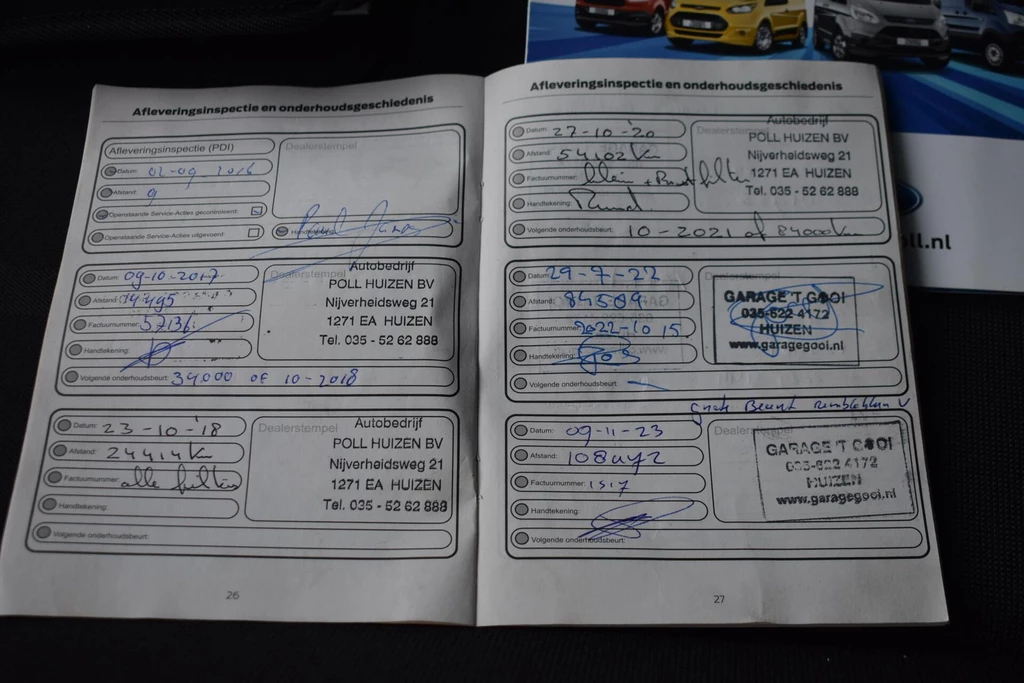 Afleveringsinspectie en onderhoudsgeschiedenis
Afleveringsinspectie (PDI)
Dealerstempel
Datum: 02-09-2016
Afstand: 9
Openstaande Service-Acties gecontroleerd:
Openstaande Service-Acties uitgevoerd:
Datum: 09-10-2017
Afstand: 14495
Factuurnummer:
Handtekening:
Volgende onderhoudsbeurt: 34.000 OF 10-2018
Dealerstempel
Autobedrijf
POLL HUIZEN BV
Nijverheidsweg 21
1271 EA HUIZEN
Tel. 035 - 52 62 888
Datum: 23-10-'18
Afstand: 24414 km
Factuurnummer: alle filters
Handtekening:
Volgende onderhoudsbeurt:
Dealerstempel
Autobedrijf
POLL HUIZEN BV
Nijverheidsweg 21
1271 EA HUIZEN
Tel. 035 - 52 62 888
26
Afleveringsinspectie en onderhoudsgeschiedenis
Datum: 27-10-'20
Afstand: 54102 km
Factuurnummer: klein +
Handtekening:
Volgende onderhoudsbeurt: 10-2021 of 84000 km
Autobedrijf
POLL HUIZEN BV
Nijverheidsweg 21
1271 EA HUIZEN
Tel. 035 - 52 62 888
Datum: 29-7-22
Afstand: 84589
Factuurnummer: 2022-1015
Handtekening:
Volgende onderhoudsbeurt: —
GARAGE 'T GOOI
035-622 4172
HUIZEN
www.garagegooi.nl
Grote Beurt remblokken V
Datum: 09-11-23
Afstand:
Factuurnummer: 1517
Handtekening:
Volgende onderhoudsbeurt:
GARAGE 'T GOOI
035-622 4172
HUIZEN
www.garagegooi.nl
27
oll.nl